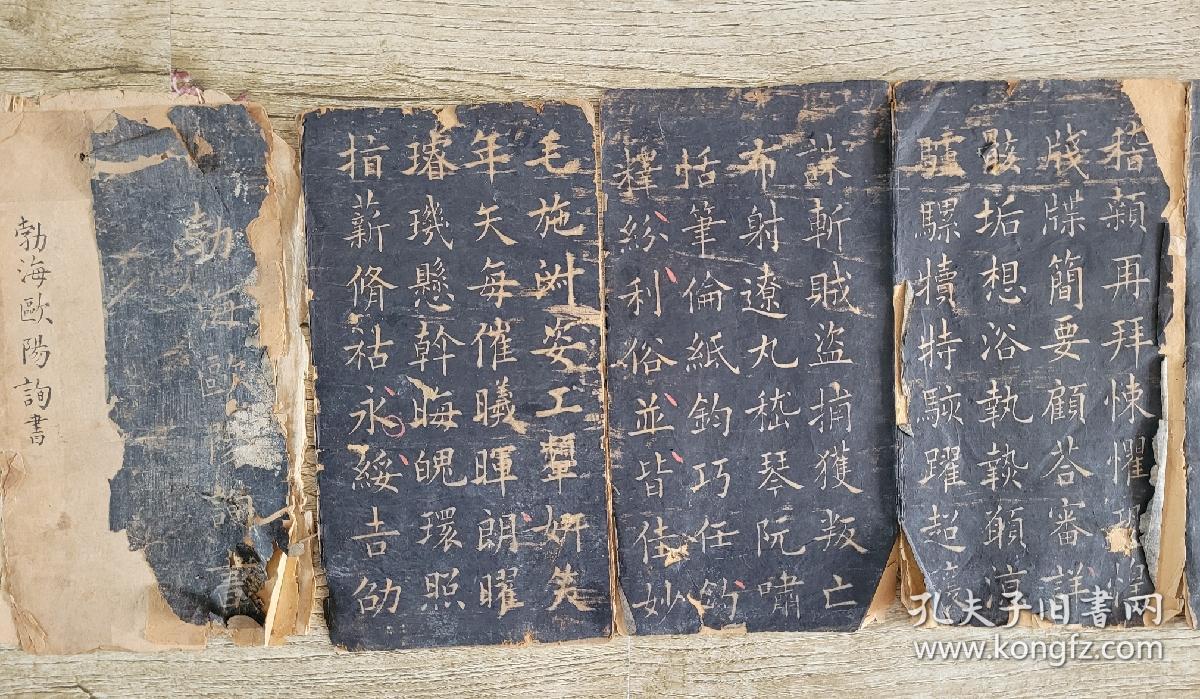 稽顙再拜悚懼恐惶
牋牒簡要顧荅審詳
骸垢想浴執熱願凉
驢騾犢特駭躍超驤
誅斬賊盜捕獲叛亡
布射遼丸嵇琴阮嘯
恬筆倫紙鈞巧任釣
釋紛利俗並皆佳妙
毛施淑姿工顰妍笑
年矢每催曦暉朗曜
璿璣懸斡晦魄環照
指薪脩祜永綏吉劭
勃海歐陽詢書
勃海歐陽詢書
孔夫子旧书网
www.kongfz.com